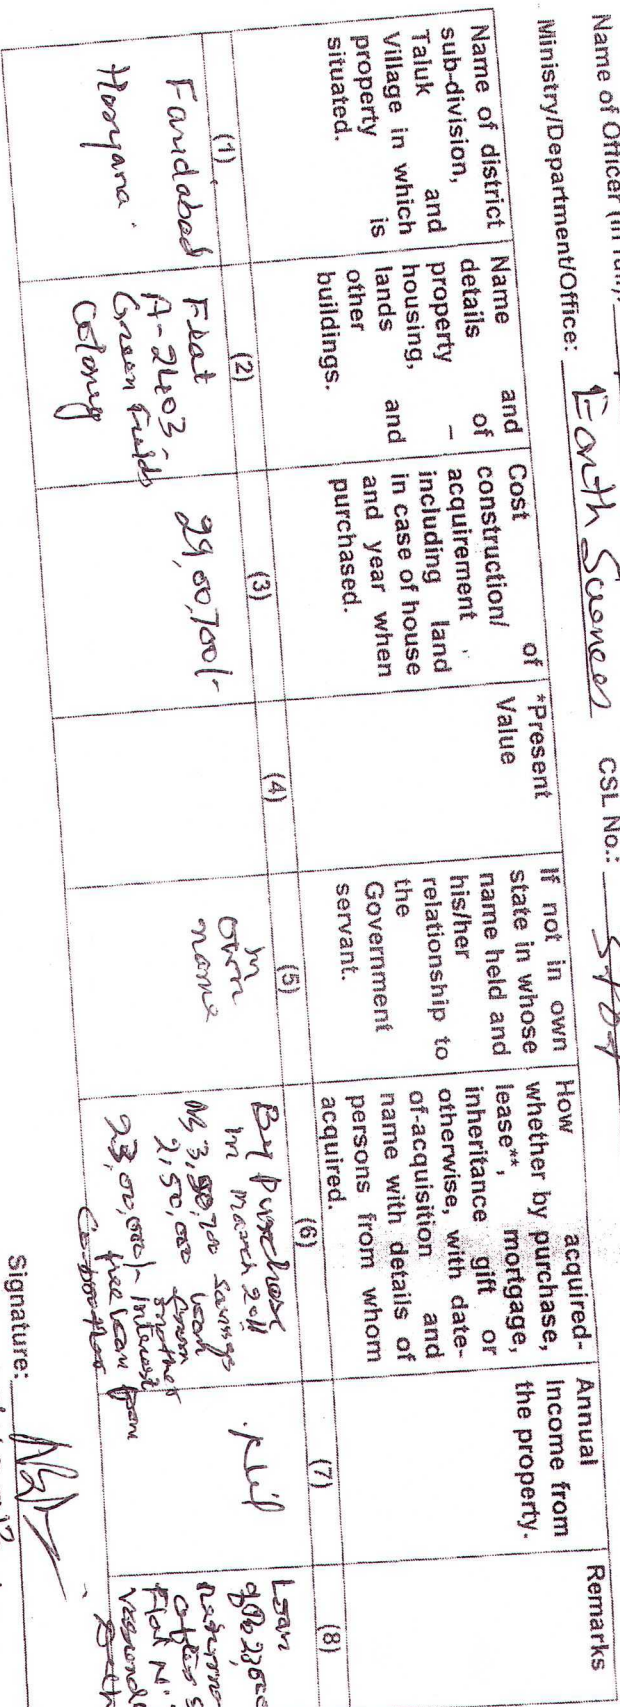 Name of Officer (in full)
Ministry/Department/Office: Earth Sciences CSL No.:
Name of district
sub-division,
Taluk and
Village in which
property is
situated.
Name and
details of
property –
housing,
lands and
other
buildings.
Cost of
construction/
acquirement
including land
in case of house
and year when
purchased.
*Present
Value
If not in own
state in whose
name held and
his/her
relationship to
the
Government
servant.
How acquired-
whether by purchase,
lease**, mortgage,
inheritance gift or
otherwise, with date-
of-acquisition and
name with details of
persons from whom
acquired.
Annual
income from
the property.
Remarks
(1)
(2)
(3)
(4)
(5)
(6)
(7)
(8)
Faridabad
Haryana.
Flat
A-2403
Green Fields
Colony
29,00,700/-
in
own
name
By Purchase
in March 2011
savings
2,50,000 loan
from
mother
23,00,000/- interest
free loan from
Nil
Loan
Signature: